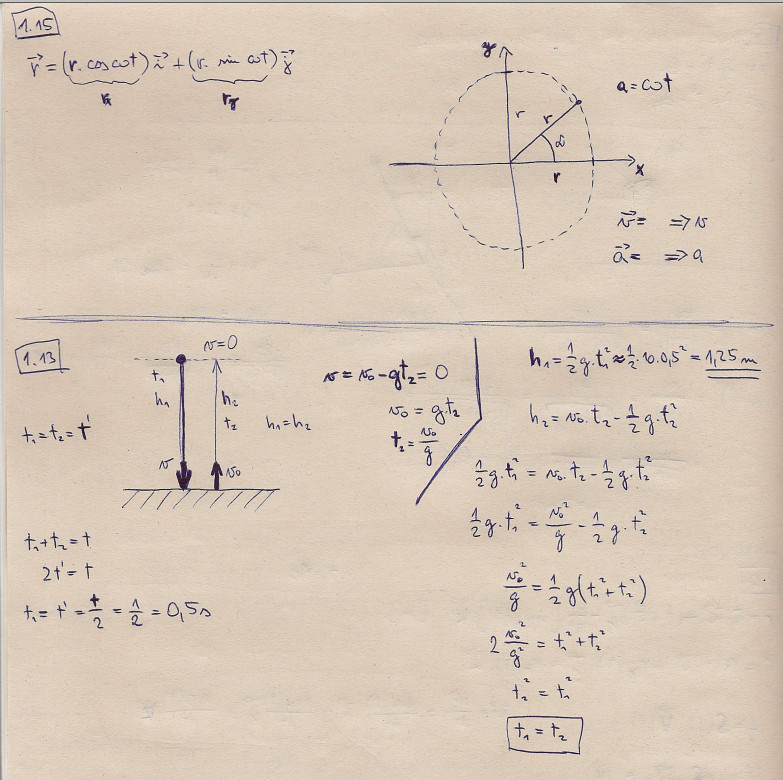 1.15
r⃗ = (r. cos ωt) i⃗ + (r. sin ωt) j⃗
rx ry
y
a = ωt
r r α
r x
v⃗ = => v
a⃗ = => a
1.13
v=0
t₁
h₁ h₂
t₂ h₁=h₂
t₁=t₂=t'
v v₀
t₁+t₂=t
2t'=t
t₁= t' = t/2 = 1/2 = 0,5s
v = v₀ - gt₂ = 0
v₀ = gt₂
t₂ = v₀/g
h₁ = 1/2 g.t₁² ≈ 1/2 .10.0,5² = 1,25 m
h₂ = v₀.t₂ - 1/2 g.t₂²
1/2 g.t₁² = v₀.t₂ - 1/2 g.t₂²
1/2 g.t₁² = v₀²/g - 1/2 g.t₂²
v₀²/g = 1/2 g(t₁²+t₂²)
2 v₀²/g² = t₁²+t₂²
t₂² = t₁²
t₁ = t₂